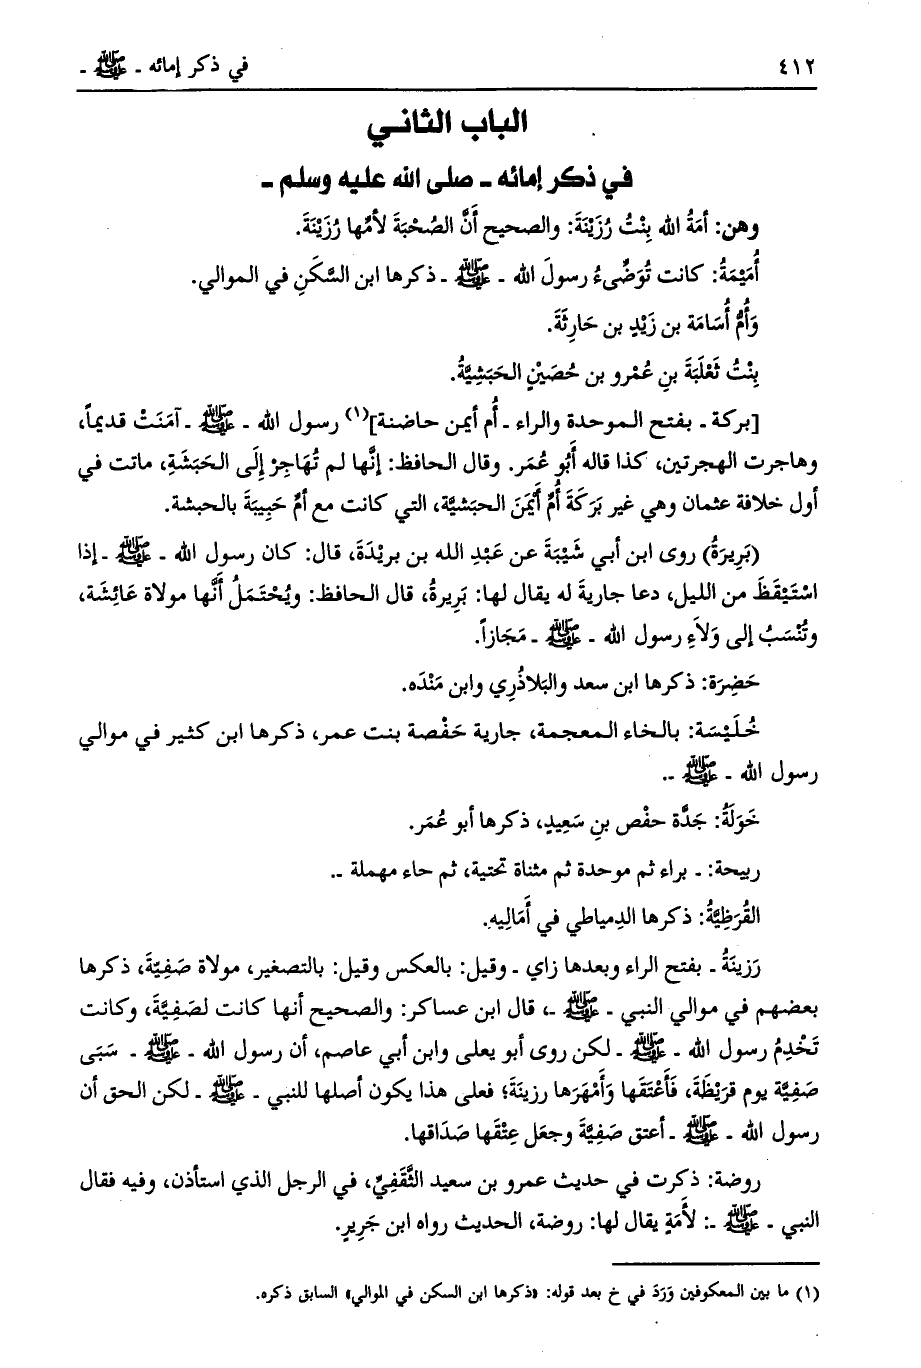 ٤١٢ في ذكر إمائه ـ ﷺ ـ
الباب الثاني
في ذكر إمائه ـ صلى الله عليه وسلم ـ
وهن: أمَةُ الله بِنْتُ رُزَيْنَةَ: والصحيح أَنَّ الصُحْبَةَ لأمِّها رُزَيْنَةَ.
أُمَيْمَةُ: كانت تُوَضِّىءُ رسولَ الله ـ ﷺ ـ ذكرها ابن السَّكَنِ في الموالي.
وَأُمُّ أُسَامَة بن زَيْدٍ بن حَارِثَةَ.
بِنْتُ ثَعْلَبَةَ بنِ عُمْرو بن حُصَيْنٍ الحَبَشِيَّةُ.
[بركة ـ بفتح الموحدة والراء ـ أُم أيمن حاضنة](١) رسول الله ـ ﷺ ـ آمَنَتْ قديماً،
وهاجرت الهجرتين، كذا قاله أَبُو عُمَر. وقال الحافظ: إنَّها لم تُهَاجِرْ إِلَى الحَبَشَةِ، ماتت في
أول خلافة عثمان وهي غير بَرَكَةَ أُمِّ أَيْمَنَ الحبَشيَّة، التي كانت مع أمِّ حَبِيبَةَ بالحبشة.
(بَرِيرَةُ) روى ابن أبي شَيْبَةَ عن عَبْدِ الله بن بريْدَةَ، قال: كان رسول الله ـ ﷺ ـ إذا
اسْتَيْقَظَ من الليل، دعا جاريةَ له يقال لها: بَرِيرةُ، قال الحافظ: ويُحْتَمَلُ أَنَّها مولاة عَائِشة،
وتُنْسَبُ إلى وَلاَءِ رسول الله ـ ﷺ ـ مَجَازاً.
خَضِرَة: ذكرها ابن سعد والبَلاذُرِي وابن مَنْدَه.
خُلَيْسَة: بالخاء المعجمة، جارية حَفْصة بنت عمر، ذكرها ابن كثير في موالي
رسول الله ـ ﷺ ـ.
خَوَلَةُ: جَدَّة حفْص بنِ سَعِيدٍ، ذكرها أبو عُمَر.
ربيحة: ـ براء ثم موحدة ثم مثناة تحتية، ثم حاء مهملة ـ.
القُرَظِيَّةُ: ذكرها الدِمياطي في أَمَالِيه.
رَزينَةُ ـ بفتح الراء وبعدها زاي ـ وقيل: بالعكس وقيل: بالتصغير، مولاة صَفِيّةَ، ذكرها
بعضهم في موالي النبي ـ ﷺ ـ، قال ابن عساكر: والصحيح أنها كانت لصَفِيَّةَ، وكانت
تَخْدِمُ رسول الله ـ ﷺ ـ لكن روى أبو يعلى وابن أبي عاصم، أن رسول الله ـ ﷺ ـ سَبَى
صَفِيَّة يوم قرَيْظَةَ، فَأَعْتَقَها وَأَمْهَرَها رزينَةَ؛ فعلى هذا يكون أصلها للنبي ـ ﷺ ـ لكن الحق أن
رسول الله ـ ﷺ ـ أعتق صَفِيَّةَ وجعَل عِتْقَها صَدَاقها.
روضة: ذكرت في حديث عمرو بن سعيد الثَّقَفِيِّ، في الرجل الذي استأذن، وفيه فقال
النبي ـ ﷺ ـ: لأَمَةٍ يقال لها: روضة، الحديث رواه ابن جَرِيرٍ.
(١) ما بين المعكوفين وَرَدَ في خ بعد قوله: «ذكرها ابن السكن في الموالي» السابق ذكره.